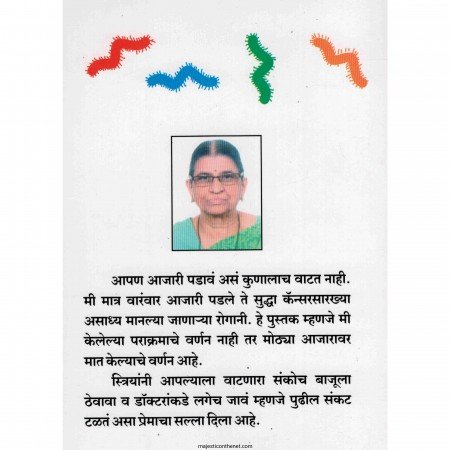 आपण आजारी पडावं असं कुणालाच वाटत नाही.
मी मात्र वारंवार आजारी पडले ते सुद्धा कॅन्सरसारख्या
असाध्य मानल्या जाणाऱ्या रोगानी. हे पुस्तक म्हणजे मी
केलेल्या पराक्रमाचे वर्णन नाही तर मोठ्या आजारावर
मात केल्याचे वर्णन आहे.
स्त्रियांनी आपल्याला वाटणारा संकोच बाजूला
ठेवावा व डॉक्टरांकडे लगेच जावं म्हणजे पुढील संकट
टळतं असा प्रेमाचा सल्ला दिला आहे.
majesticonthenet.com